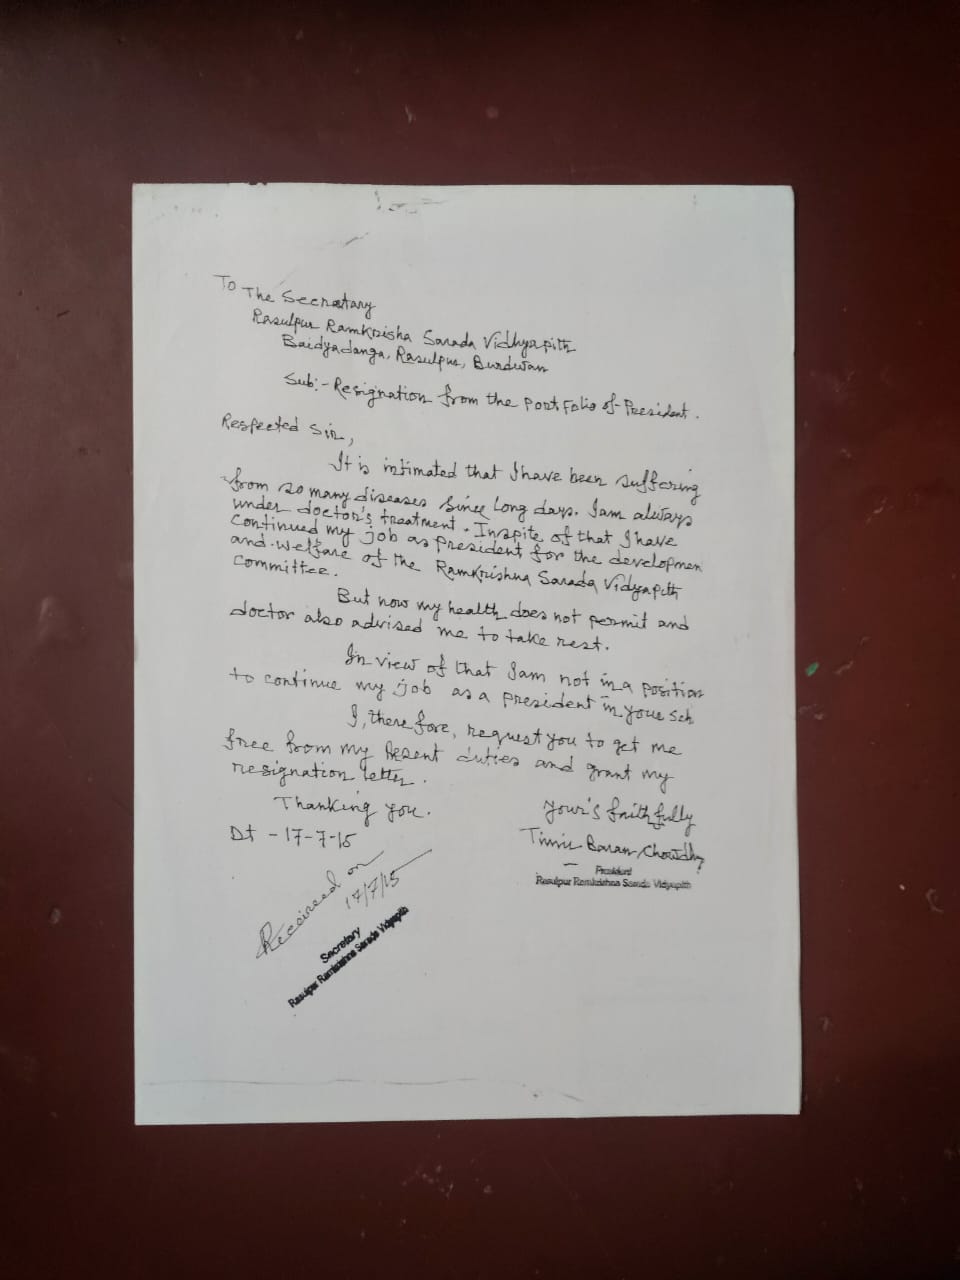 To The Secretary
Rasulpur Ramkrisha Sarada Vidhyapith
Baidyadanga, Rasulpur, Burdwan
Sub:- Resignation from the Port Folio of President.
Respected Sir,
It is intimated that I have been suffering
from so many diseases since long days. I am always
under doctor's treatment. Inspite of that I have
continued my job as president for the developmen
and welfare of the Ramkrishna Sarada Vidyapith
committee.
But now my health does not permit and
doctor also advised me to take rest.
In view of that I am not in a position
to continue my job as a president in your sch
I, there fore, request you to get me
free from my Present duties and grant my
resignation letter.
Thanking you.
Your's faithfully
Dt - 17-7-15
Timir Baran Chowdhy
President
Rasulpur Ramkrishna Sarada Vidyapith
Received on
17/7/15
Secretary
Rasulpur Ramkrishna Sarada Vidyapith